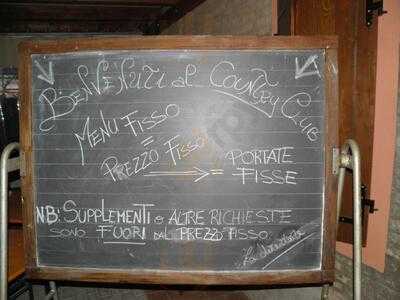 Benvenuti al Country Club
MENU FISSO
=
PREZZO FISSO
= PORTATE
FISSE
NB: SUPPLEMENTI e ALTRE RICHIESTE
SONO FUORI DAL PREZZO FISSO.